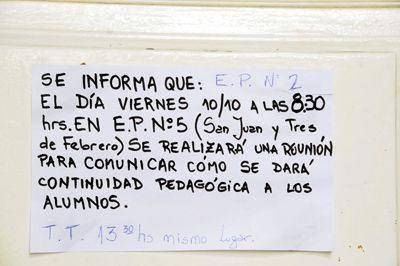 SE INFORMA QUE: E.P. Nº 2
EL DÍA VIERNES 10/10 A LAS 8,30
hrs. EN E.P. Nº 5 (San Juan y Tres
de Febrero) SE REALIZARÁ UNA REUNIÓN
PARA COMUNICAR CÓMO SE DARÁ
CONTINUIDAD PEDAGÓGICA A LOS
ALUMNOS.
T.T. 13 30 hs mismo lugar.